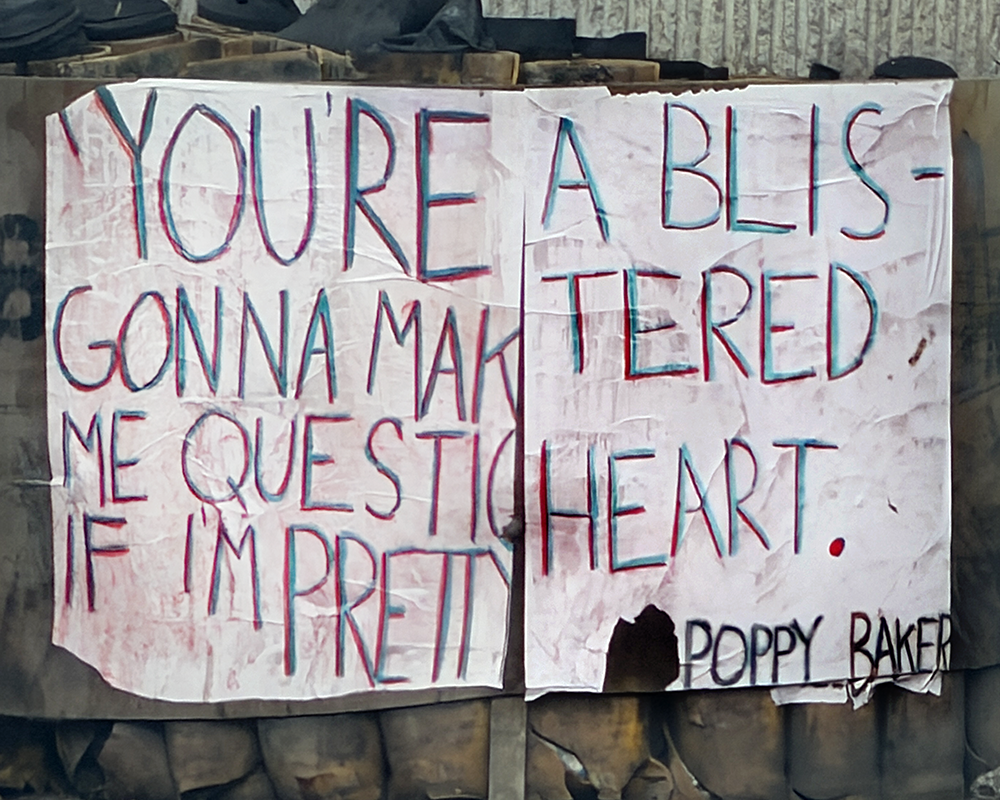 'YOU'RE
GONNA MAK
ME QUESTIO
IF I'M PRETTY
A BLIS-
TERED
HEART.
POPPY BAKER